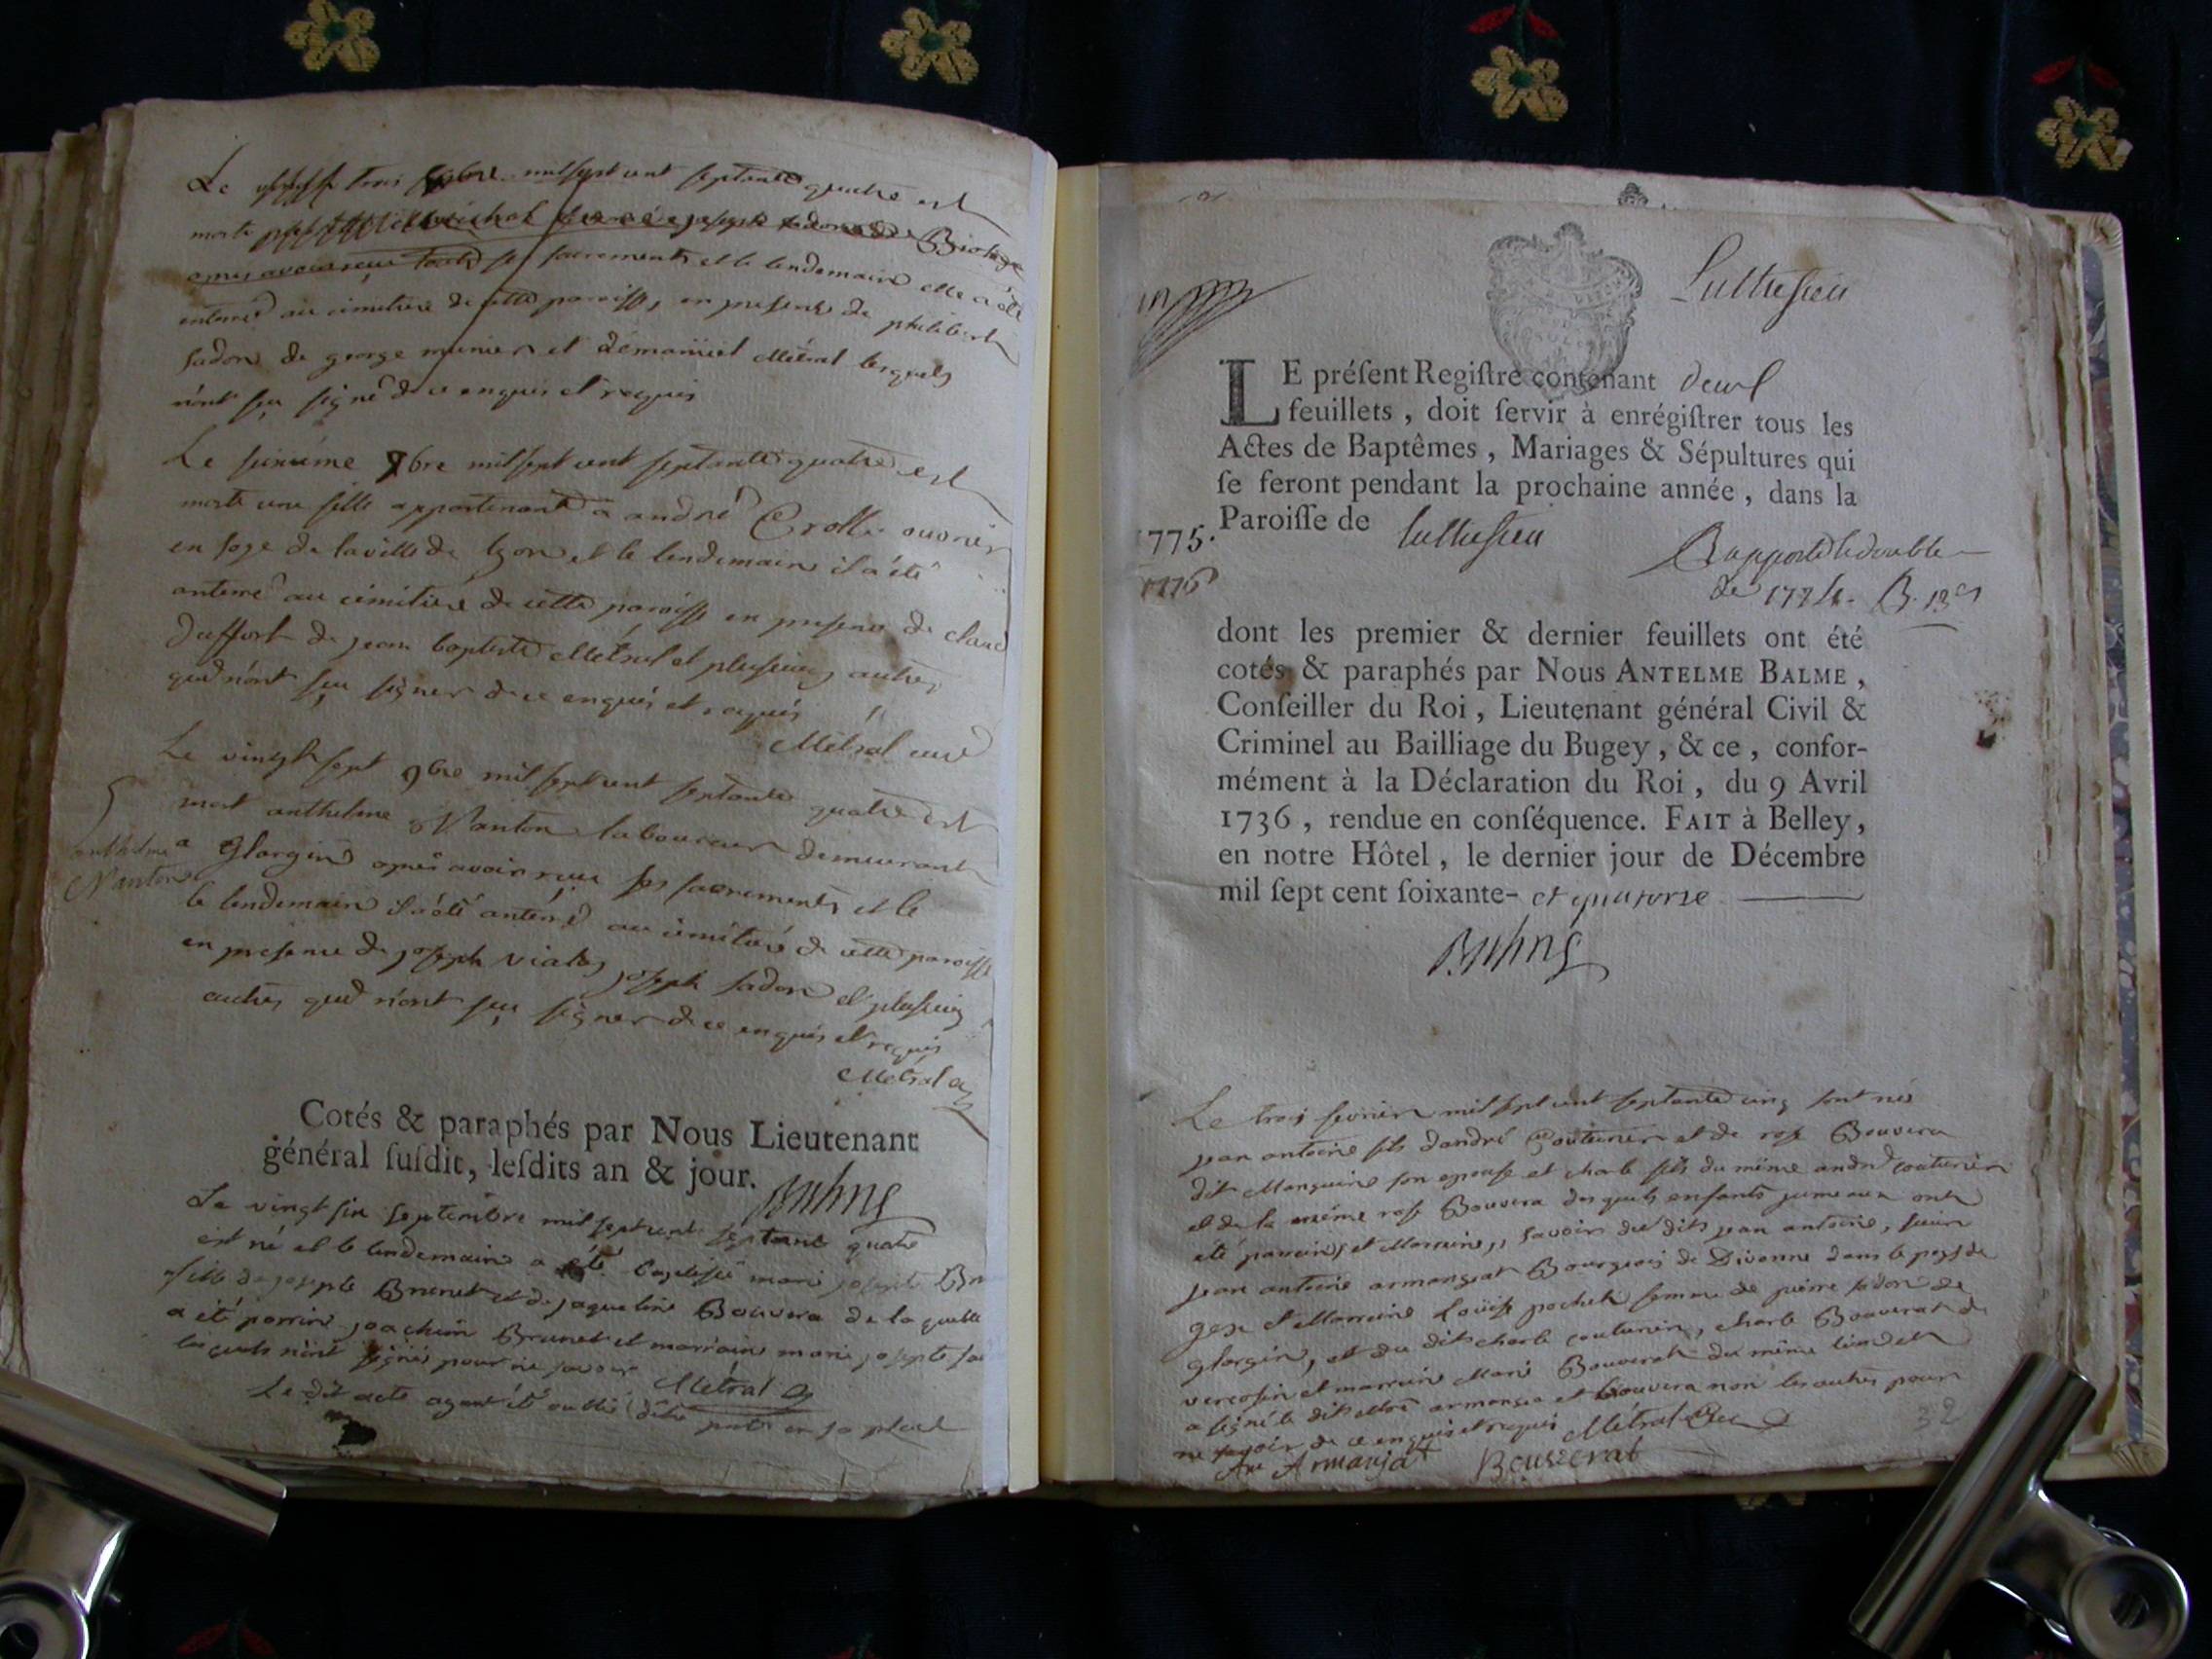 Le trois mil sept cent septante quatre est
morte
apres avoir reçu ses sacrements et le lendemain elle a été
enterré au cimitiere de cette paroisse, en presence de philibert
fadon de george munier et démanuel Métral lesquels
n'ont sçu signé de ce enquis et requis
Le sixième 9bre mil sept cent septante quatre est
morte une fille appartenante a andré Crolle ouvrier
en soye de la ville de lyon et le lendemain il a été
anterré au cimitiere de cette paroisse en presence de claud
Duffort de jean baptiste Métral et plusieurs autres
qui n'ont sçu signer de ce enquis et requis
Métral curé
Le vingt sept 9bre mil sept cent septante quatre est
mort anthelme Nanton laboureur demeurant
anthelme
Nanton
a Glargin apres avoir reçu ses sacrements et le
le lendemain il a été anterré au cimitiere de cette paroisse
en presence de joseph vialey joseph fadon et plusieurs
autres qui n'ont sçu signer de ce enquis et requis
Métral
Cotés & paraphés par Nous Lieutenant
général ſuſdit, leſdits an & jour.
Le vingt six septembre mil sept cent septante quatre
est né et le lendemain a été baptisé marie josepte
fille de joseph Brunet et de jaqueline Bouvera de laquelle
a été parrin joachim Brunet et marraine marie josepte
lesquels n'ont signés pour ne savoir Métral
Le dit acte ayant été oublié porté en sa place
Luthesieu
LE préſent Regiſtre contenant deux
feuillets, doit ſervir à enrégiſtrer tous les
Actes de Baptêmes, Mariages & Sépultures qui
ſe feront pendant la prochaine année, dans la
Paroiſſe de Luthesieu
1775.
1776
Rapporté le double
de 1774.
dont les premier & dernier feuillets ont été
cotés & paraphés par Nous ANTELME BALME,
Conſeiller du Roi, Lieutenant général Civil &
Criminel au Bailliage du Bugey, & ce, confor-
mément à la Déclaration du Roi, du 9 Avril
1736, rendue en conſéquence. FAIT à Belley,
en notre Hôtel, le dernier jour de Décembre
mil ſept cent ſoixante- et quatorse
Le trois fevrier mil sept cent septante cinq sont nés
jean antoine fils d'andré Couturier et de rose Bouvera
dit Manguine son epouse et charle fils du même andré couturier
et de la même rose Bouvera desquels enfants jumeaux ont
été parrins et Marraines, savoir du dit jean antoine, sieur
jean antoine armanjeat Bourgeois de Divonne dans le pays de
gex et Marraine Loüise pochet femme de pierre fadon de
glargin, et du dit charle couturier, charle Bouverat de
vercosin et marraine Marie Bouverat du même lieu et
a signé le dit armanjea et Bouvera non les autres pour
ne savoir de ce enquis et requis Métral
Armanjat Bouverat
32